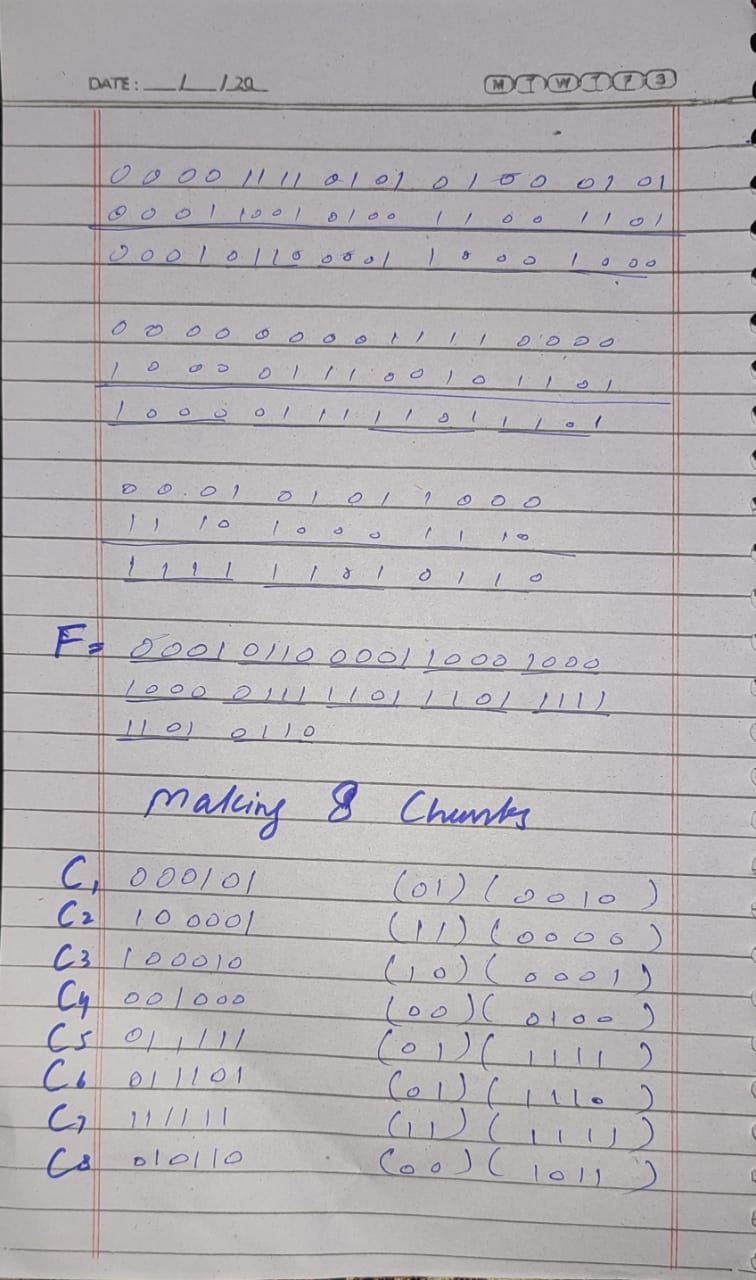 DATE: __/__/20__ M T W T F S
0 0 0 0 1 1 1 1 0 1 0 1 0 1 0 0 0 1 0 1
0 0 0 1 1 0 0 1 0 1 0 0 1 1 0 0 1 1 0 1
0 0 0 1 0 1 1 0 0 0 0 1 1 0 0 0 1 0 0 0
0 0 0 0 0 0 0 0 1 1 1 1 0 0 0 0
1 0 0 0 0 1 1 1 0 0 1 0 1 1 0 1
1 0 0 0 0 1 1 1 1 1 0 1 1 1 0 1
0 0 0 1 0 1 0 1 1 0 0 0
1 1 1 0 1 0 0 0 1 1 1 0
1 1 1 1 1 1 0 1 0 1 1 0
F= 0001 0110 0001 1000 1000
1000 0111 1101 1101 1111
1101 0110
Making 8 Chunks
C1 000101 (01) (0010)
C2 100001 (11) (0000)
C3 100010 (10) (0001)
C4 001000 (00) (0100)
C5 011111 (01) (1111)
C6 011101 (01) (1110)
C7 111111 (11) (1111)
C8 010110 (00) (1011)